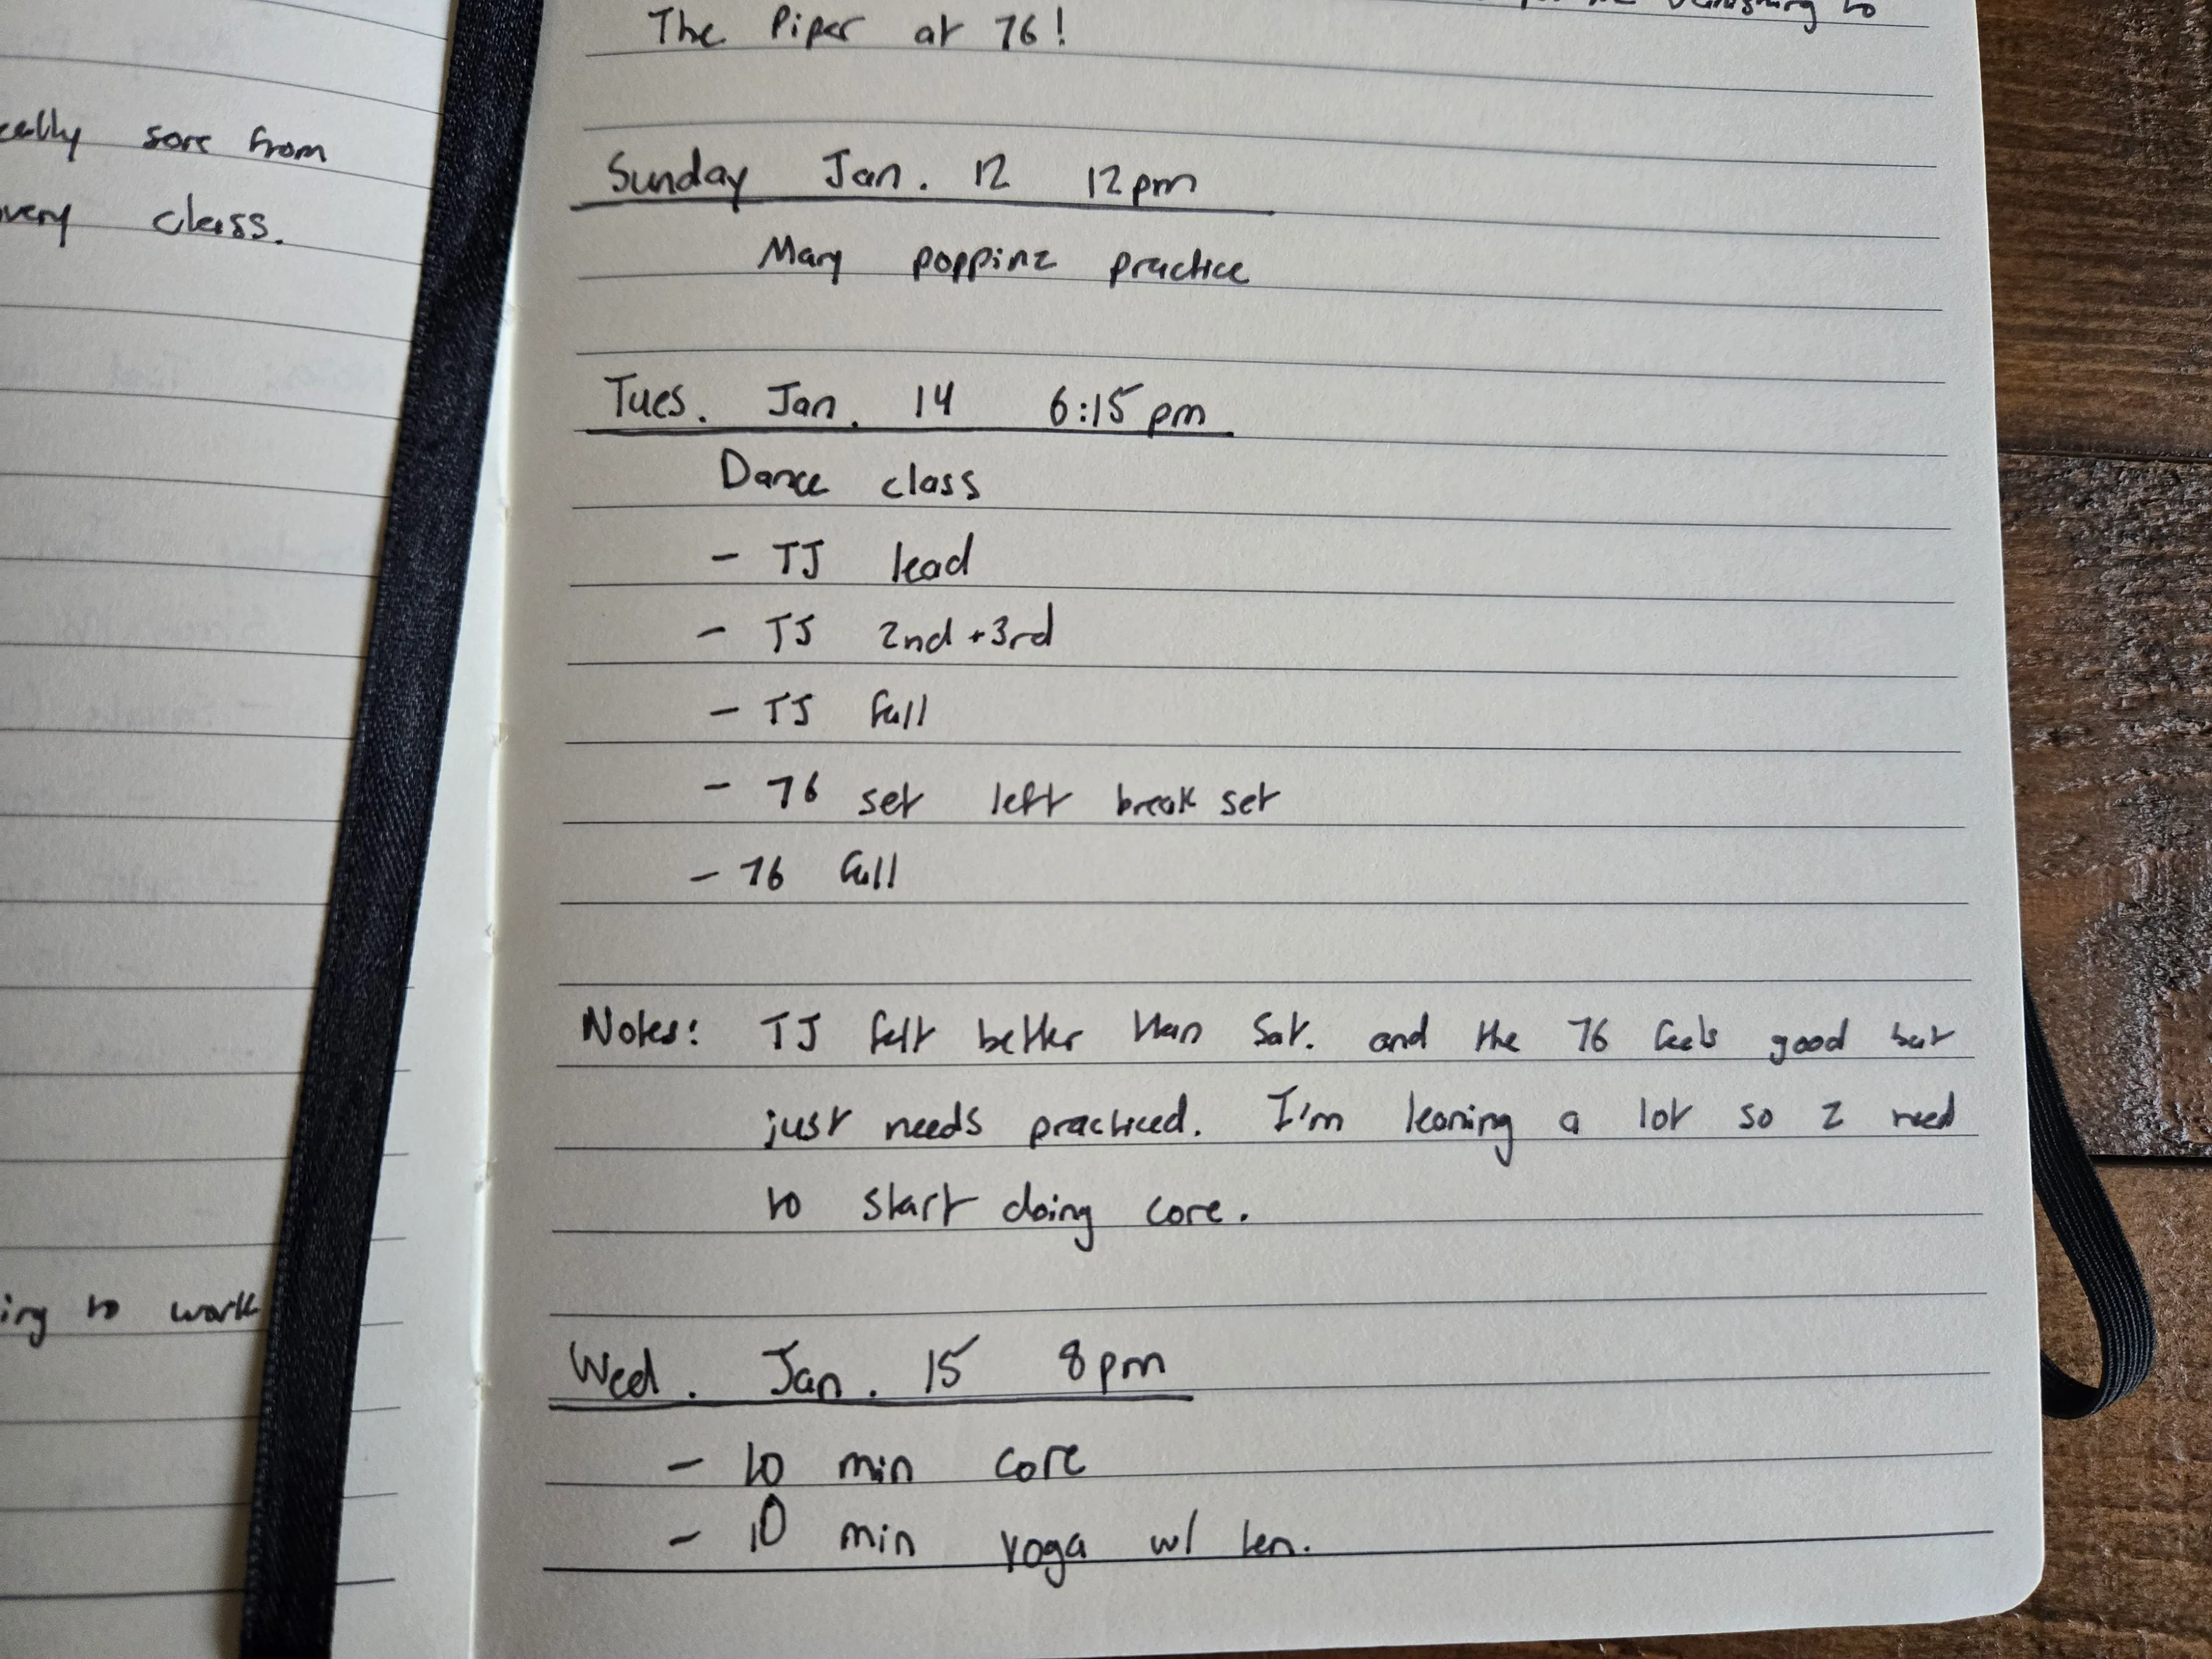 sore from
class.
to work
to
The Piper at 76!
Sunday Jan. 12 12pm
Mary poppinz practice
Tues. Jan. 14 6:15pm
Dance class
- TJ lead
- TJ 2nd + 3rd
- TJ full
- 76 set left break set
- 76 full
Notes: TJ felt better than Sat. and the 76 feels good but
just needs practiced. I'm leaning a lot so I need
to start doing core.
Wed. Jan. 15 8pm
- 10 min core
- 10 min yoga w/